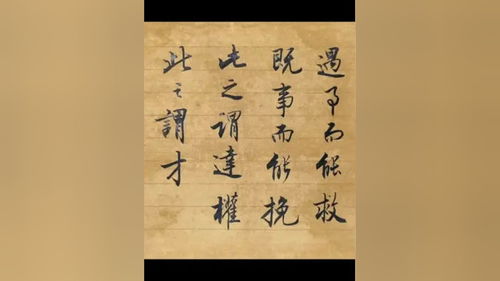 遇事而能救
既事而能挽
此之谓達權
此之謂才